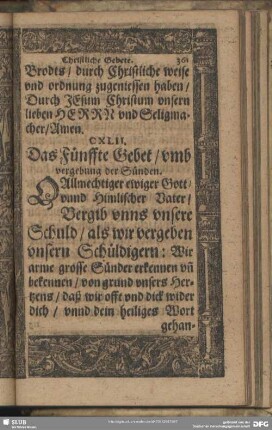 Christliche Gebete.
Brodts / durch Christliche weise
vnd ordnung zugeniessen haben /
Durch JEsum Christum vnsern
lieben HERRN vnd Seligma-
cher / Amen.
CXLII.
Das Fünffte Gebet / vmb
vergebung der Sünden.
O Allmechtiger ewiger Gott /
vnnd Himlischer Vater /
Vergib vnns vnsere
Schuld / als wir vergeben
vnsern Schüldigern: Wir
arme grosse Sünder erkennen vñ
bekennen / von grund vnsers Her-
tzens / daß wir offt vnd dick wider
dich / vnnd dein heiliges Wort
gehan-
SLUB
DFG